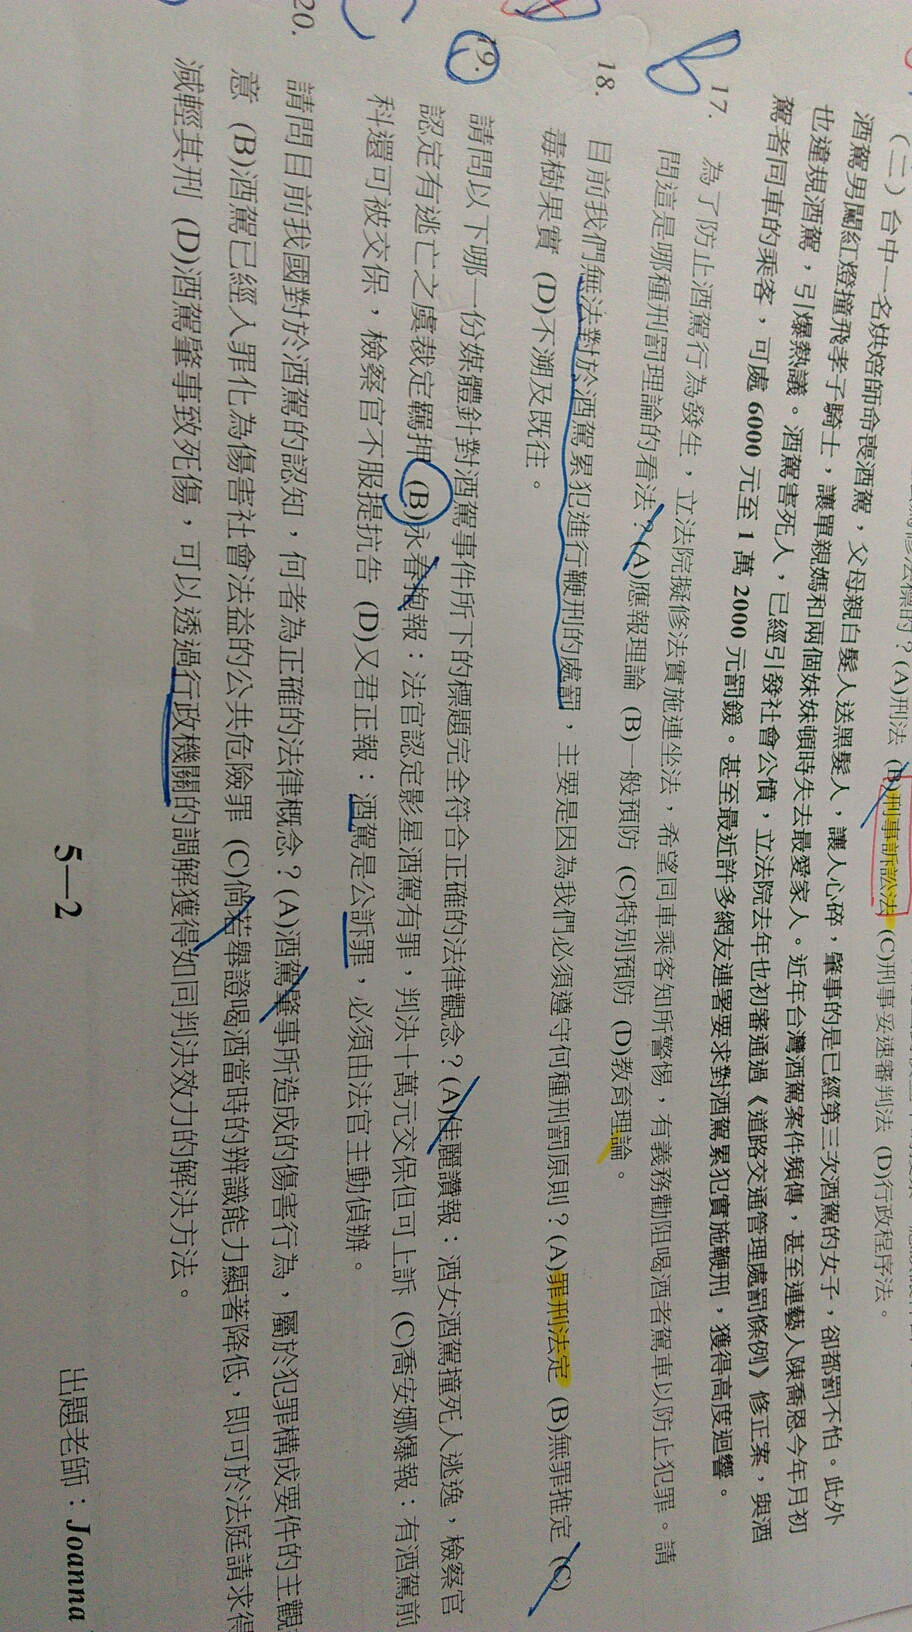 (A)刑法 (B)刑事訴訟法 (C)刑事妥速審判法 (D)行政程序法。
(二)台中一名烘焙師命喪酒駕,父母親白髮人送黑髮人,讓人心碎,肇事的是已經第三次酒駕的女子,卻都罰不怕。此外
酒駕男闖紅燈撞飛孝子騎士,讓單親媽和兩個妹妹頓時失去最愛家人。近年台灣酒駕案件頻傳,甚至連藝人陳喬恩今年月初
也違規酒駕,引爆熱議。酒駕害死人,已經引發社會公憤,立法院去年也初審通過《道路交通管理處罰條例》修正案,與酒
駕者同車的乘客,可處 6000 元至 1 萬 2000 元罰鍰。甚至最近許多網友連署要求對酒駕累犯實施鞭刑,獲得高度迴響。
B 17. 為了防止酒駕行為發生,立法院擬修法實施連坐法,希望同車乘客知所警惕,有義務勸阻喝酒者駕車以防止犯罪。請
問這是哪種刑罰理論的看法?(A)應報理論 (B)一般預防 (C)特別預防 (D)教育理論。
18. 目前我們無法對於酒駕累犯進行鞭刑的處罰,主要是因為我們必須遵守何種刑罰原則?(A)罪刑法定 (B)無罪推定 (C)
毒樹果實 (D)不溯及既往。
19. 請問以下哪一份媒體針對酒駕事件所下的標題完全符合正確的法律觀念?(A)佳麗讚報:酒女酒駕撞死人逃逸,檢察官
認定有逃亡之虞裁定羈押 (B)永春抱報:法官認定影星酒駕有罪,判決十萬元交保但可上訴 (C)喬安娜爆報:有酒駕前
科還可被交保,檢察官不服提抗告 (D)又君正報:酒駕是公訴罪,必須由法官主動偵辦。
20. 請問目前我國對於酒駕的認知,何者為正確的法律概念?(A)酒駕肇事所造成的傷害行為,屬於犯罪構成要件的主觀
意 (B)酒駕已經入罪化為傷害社會法益的公共危險罪 (C)倘若舉證喝酒當時的辨識能力顯著降低,即可於法庭請求得
減輕其刑 (D)酒駕肇事致死傷,可以透過行政機關的調解獲得如同判決效力的解決方法。
5—2
出題老師:Joanna